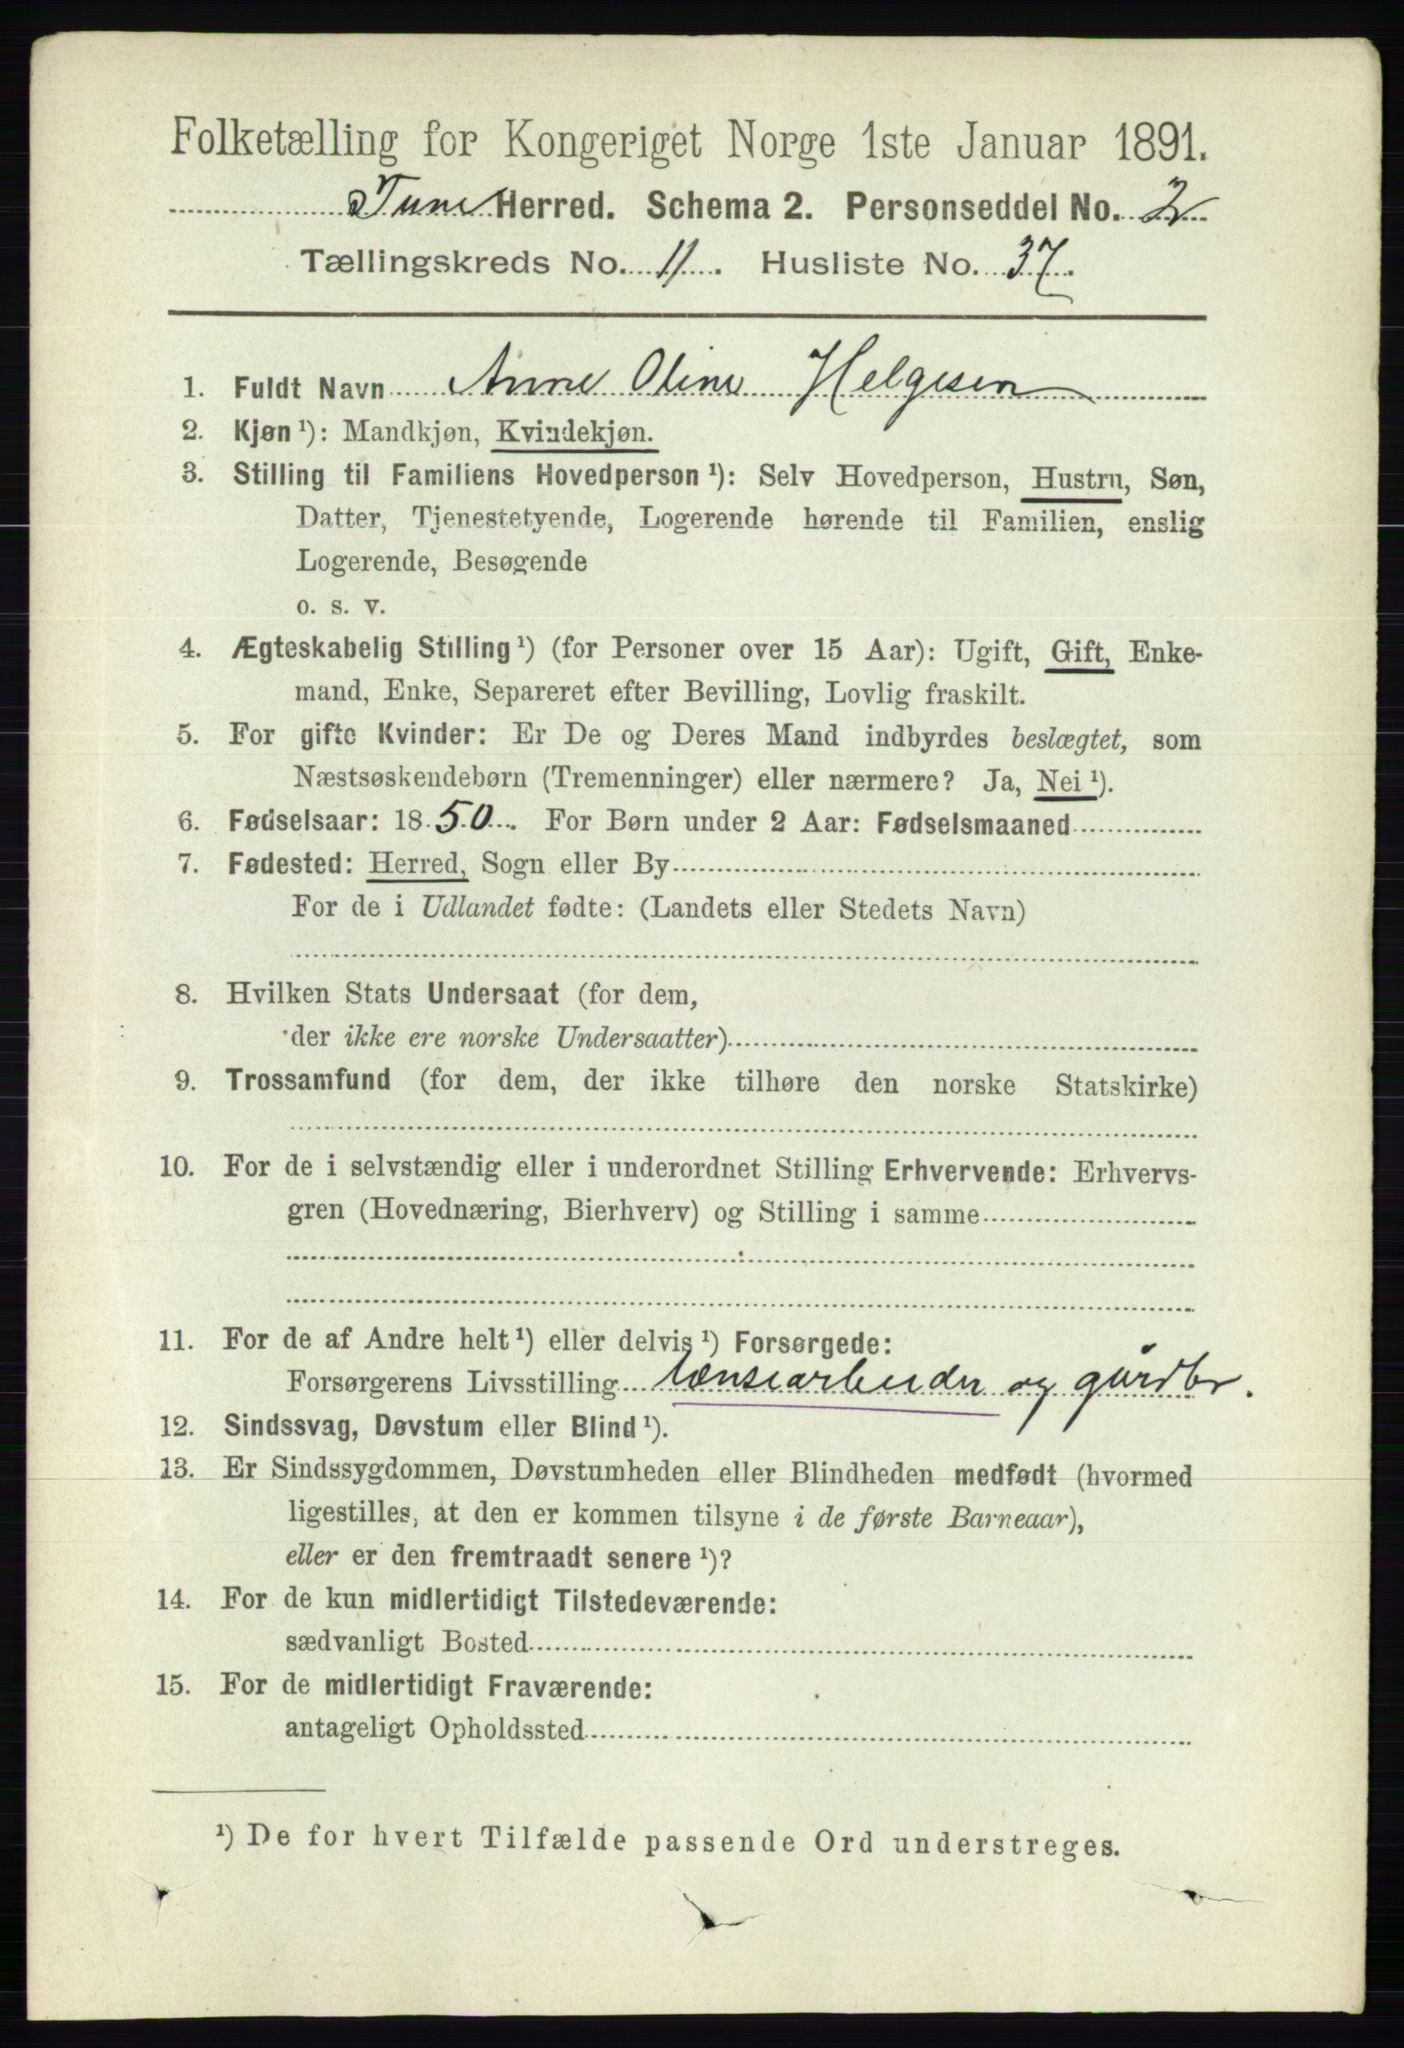 Folketælling for Kongeriget Norge 1ste Januar 1891.
Tune Herred. Schema 2. Personseddel No. 2
Tællingskreds No. 11. Husliste No. 37.
1. Fuldt Navn Anne Oline Helgesen
2. Kjøn ¹): Mandkjøn, Kvindekjøn.
3. Stilling til Familiens Hovedperson ¹): Selv Hovedperson, Hustru, Søn,
Datter, Tjenestetyende, Logerende hørende til Familien, enslig
Logerende, Besøgende
o. s. v.
4. Ægteskabelig Stilling ¹) (for Personer over 15 Aar): Ugift, Gift, Enke-
mand, Enke, Separeret efter Bevilling, Lovlig fraskilt.
5. For gifte Kvinder: Er De og Deres Mand indbyrdes beslægtet, som
Næstsøskendebørn (Tremenninger) eller nærmere? Ja, Nei ¹).
6. Fødselsaar: 1850. For Børn under 2 Aar: Fødselsmaaned
7. Fødested: Herred, Sogn eller By
For de i Udlandet fødte: (Landets eller Stedets Navn)
8. Hvilken Stats Undersaat (for dem,
der ikke ere norske Undersaatter)
9. Trossamfund (for dem, der ikke tilhøre den norske Statskirke)
10. For de i selvstændig eller i underordnet Stilling Erhvervende: Erhvervs-
gren (Hovednæring, Bierhverv) og Stilling i samme
11. For de af Andre helt ¹) eller delvis ¹) Forsørgede:
Forsørgerens Livsstilling lænsearbeider og gårdbr.
12. Sindssvag, Døvstum eller Blind ¹).
13. Er Sindssygdommen, Døvstumheden eller Blindheden medfødt (hvormed
ligestilles, at den er kommen tilsyne i de første Barneaar),
eller er den fremtraadt senere ¹)?
14. For de kun midlertidigt Tilstedeværende:
sædvanligt Bosted
15. For de midlertidigt Fraværende:
antageligt Opholdssted
¹) De for hvert Tilfælde passende Ord understreges.